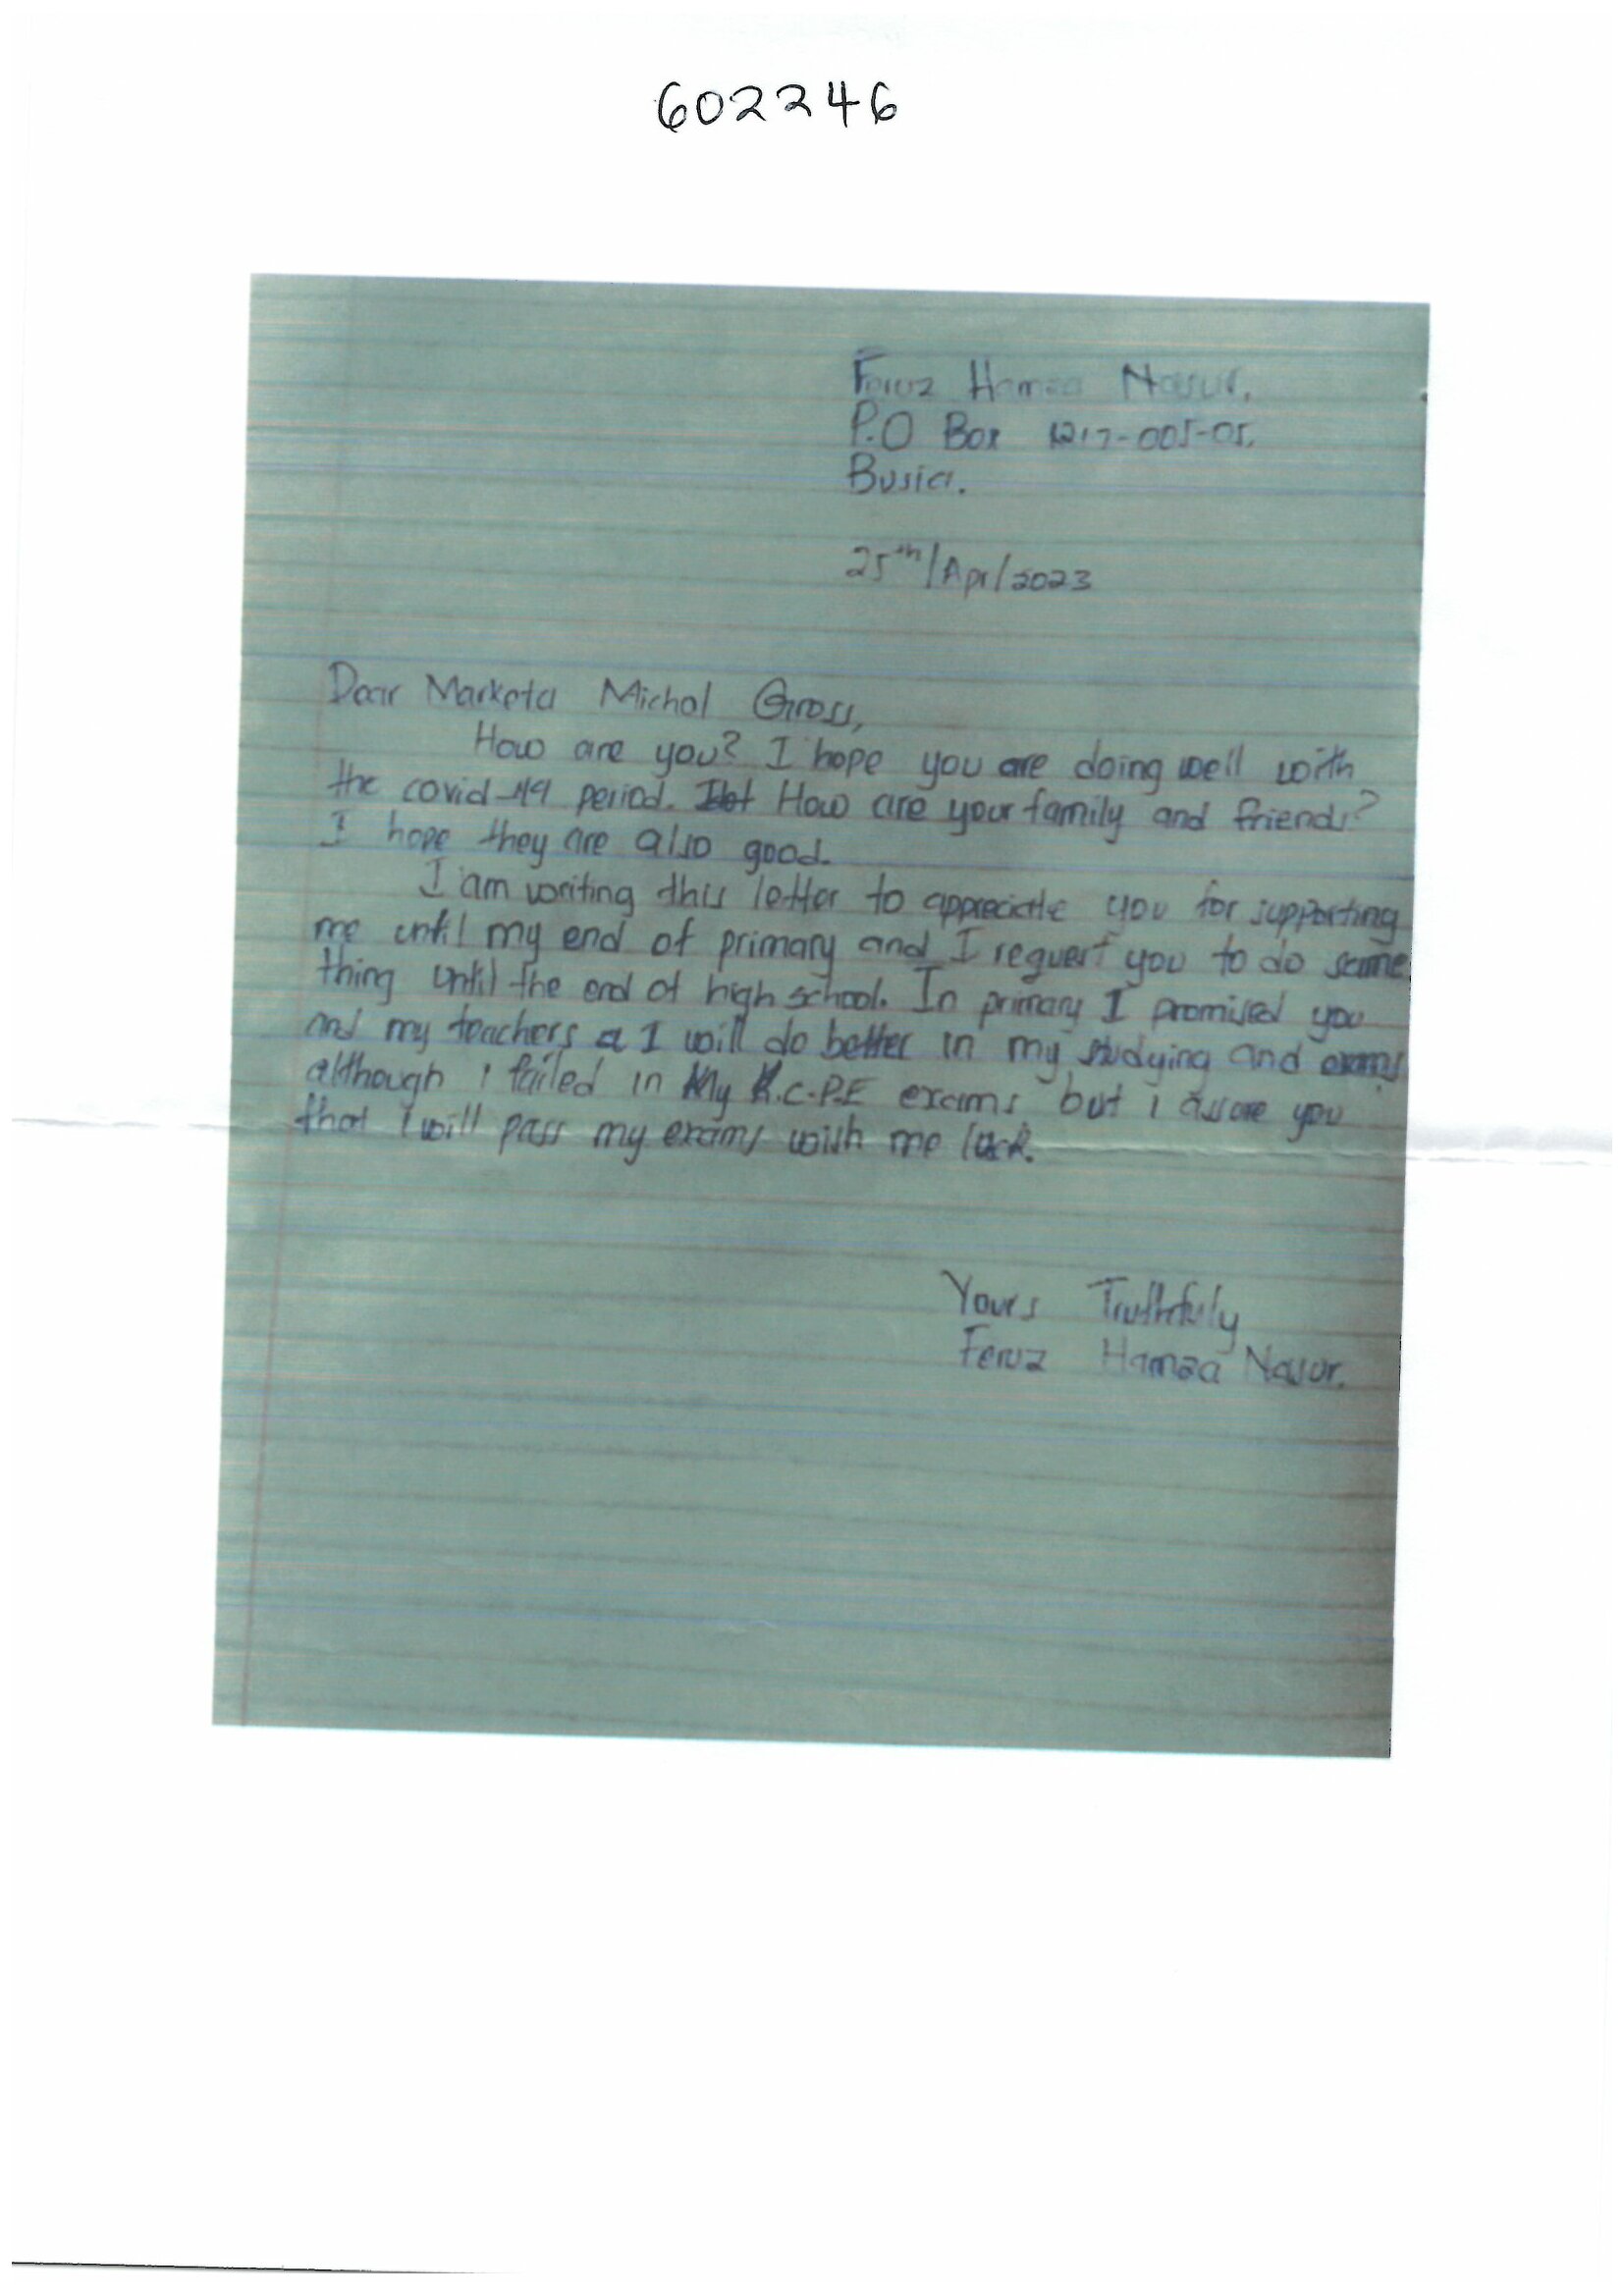 602246
Feruz Hamza Nasur.
P.O Box 1217-005-05.
Busia.
25th/Apr/2023
Dear Marketa Michal Gross,
How are you? I hope you are doing well with
the covid-19 period. How are your family and friends?
I hope they are also good.
I am writing this letter to appreciate you for supporting
me until my end of primary and I request you to do same
thing until the end of high school. In primary I promised you
and my teachers a I will do better in my studying and exams
although i failed in My K.C.P.E exams but i assure you
that I will pass my exams wish me luck.
Yours Truthfuly
Feruz Hamza Nasur.